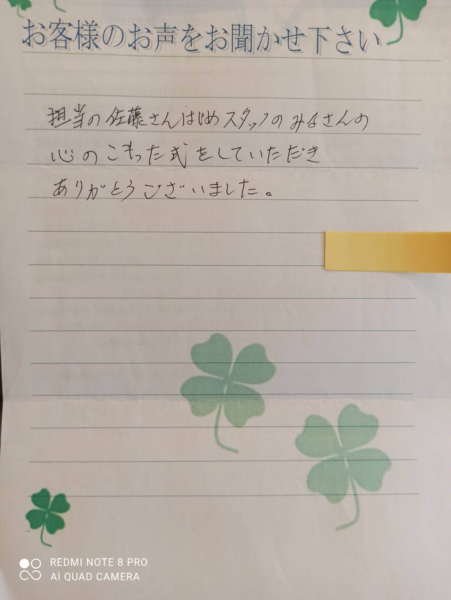 お客様のお声をお聞かせ下さい
担当の佐藤さんはじめスタッフのみなさんの
心のこもった式をしていただき
ありがとうございました。
REDMI NOTE 8 PRO
AI QUAD CAMERA